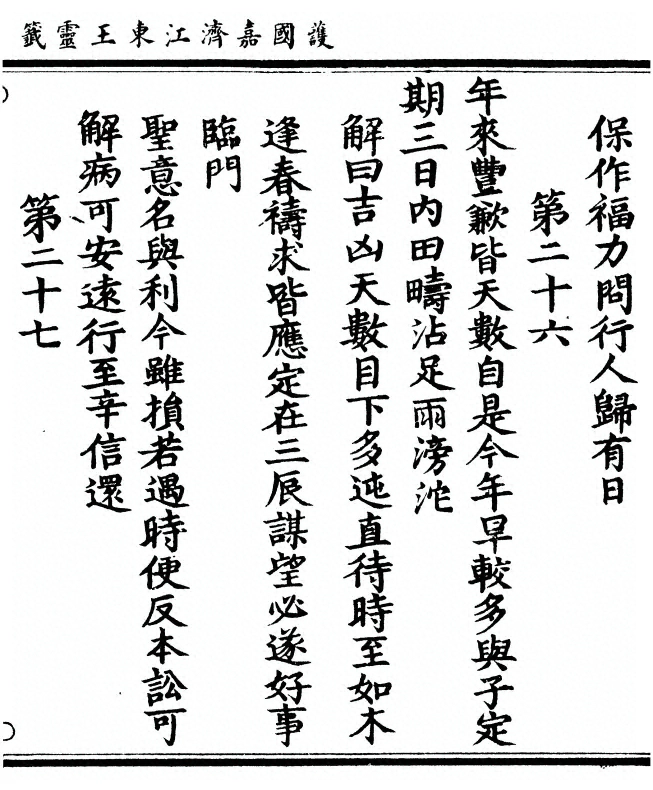 護國嘉濟江東王靈籤
保作福力問行人歸有日
第二十六
年來豐歉皆天數自是今年旱較多與子定
期三日內田疇沾足雨滂沱
解曰吉凶天數目下多迍直待時至如木
逢春禱求皆應定在三辰謀望必遂好事
臨門
聖意名與利今雖損若遇時便反本訟可
解病可安遠行至辛信還
第二十七